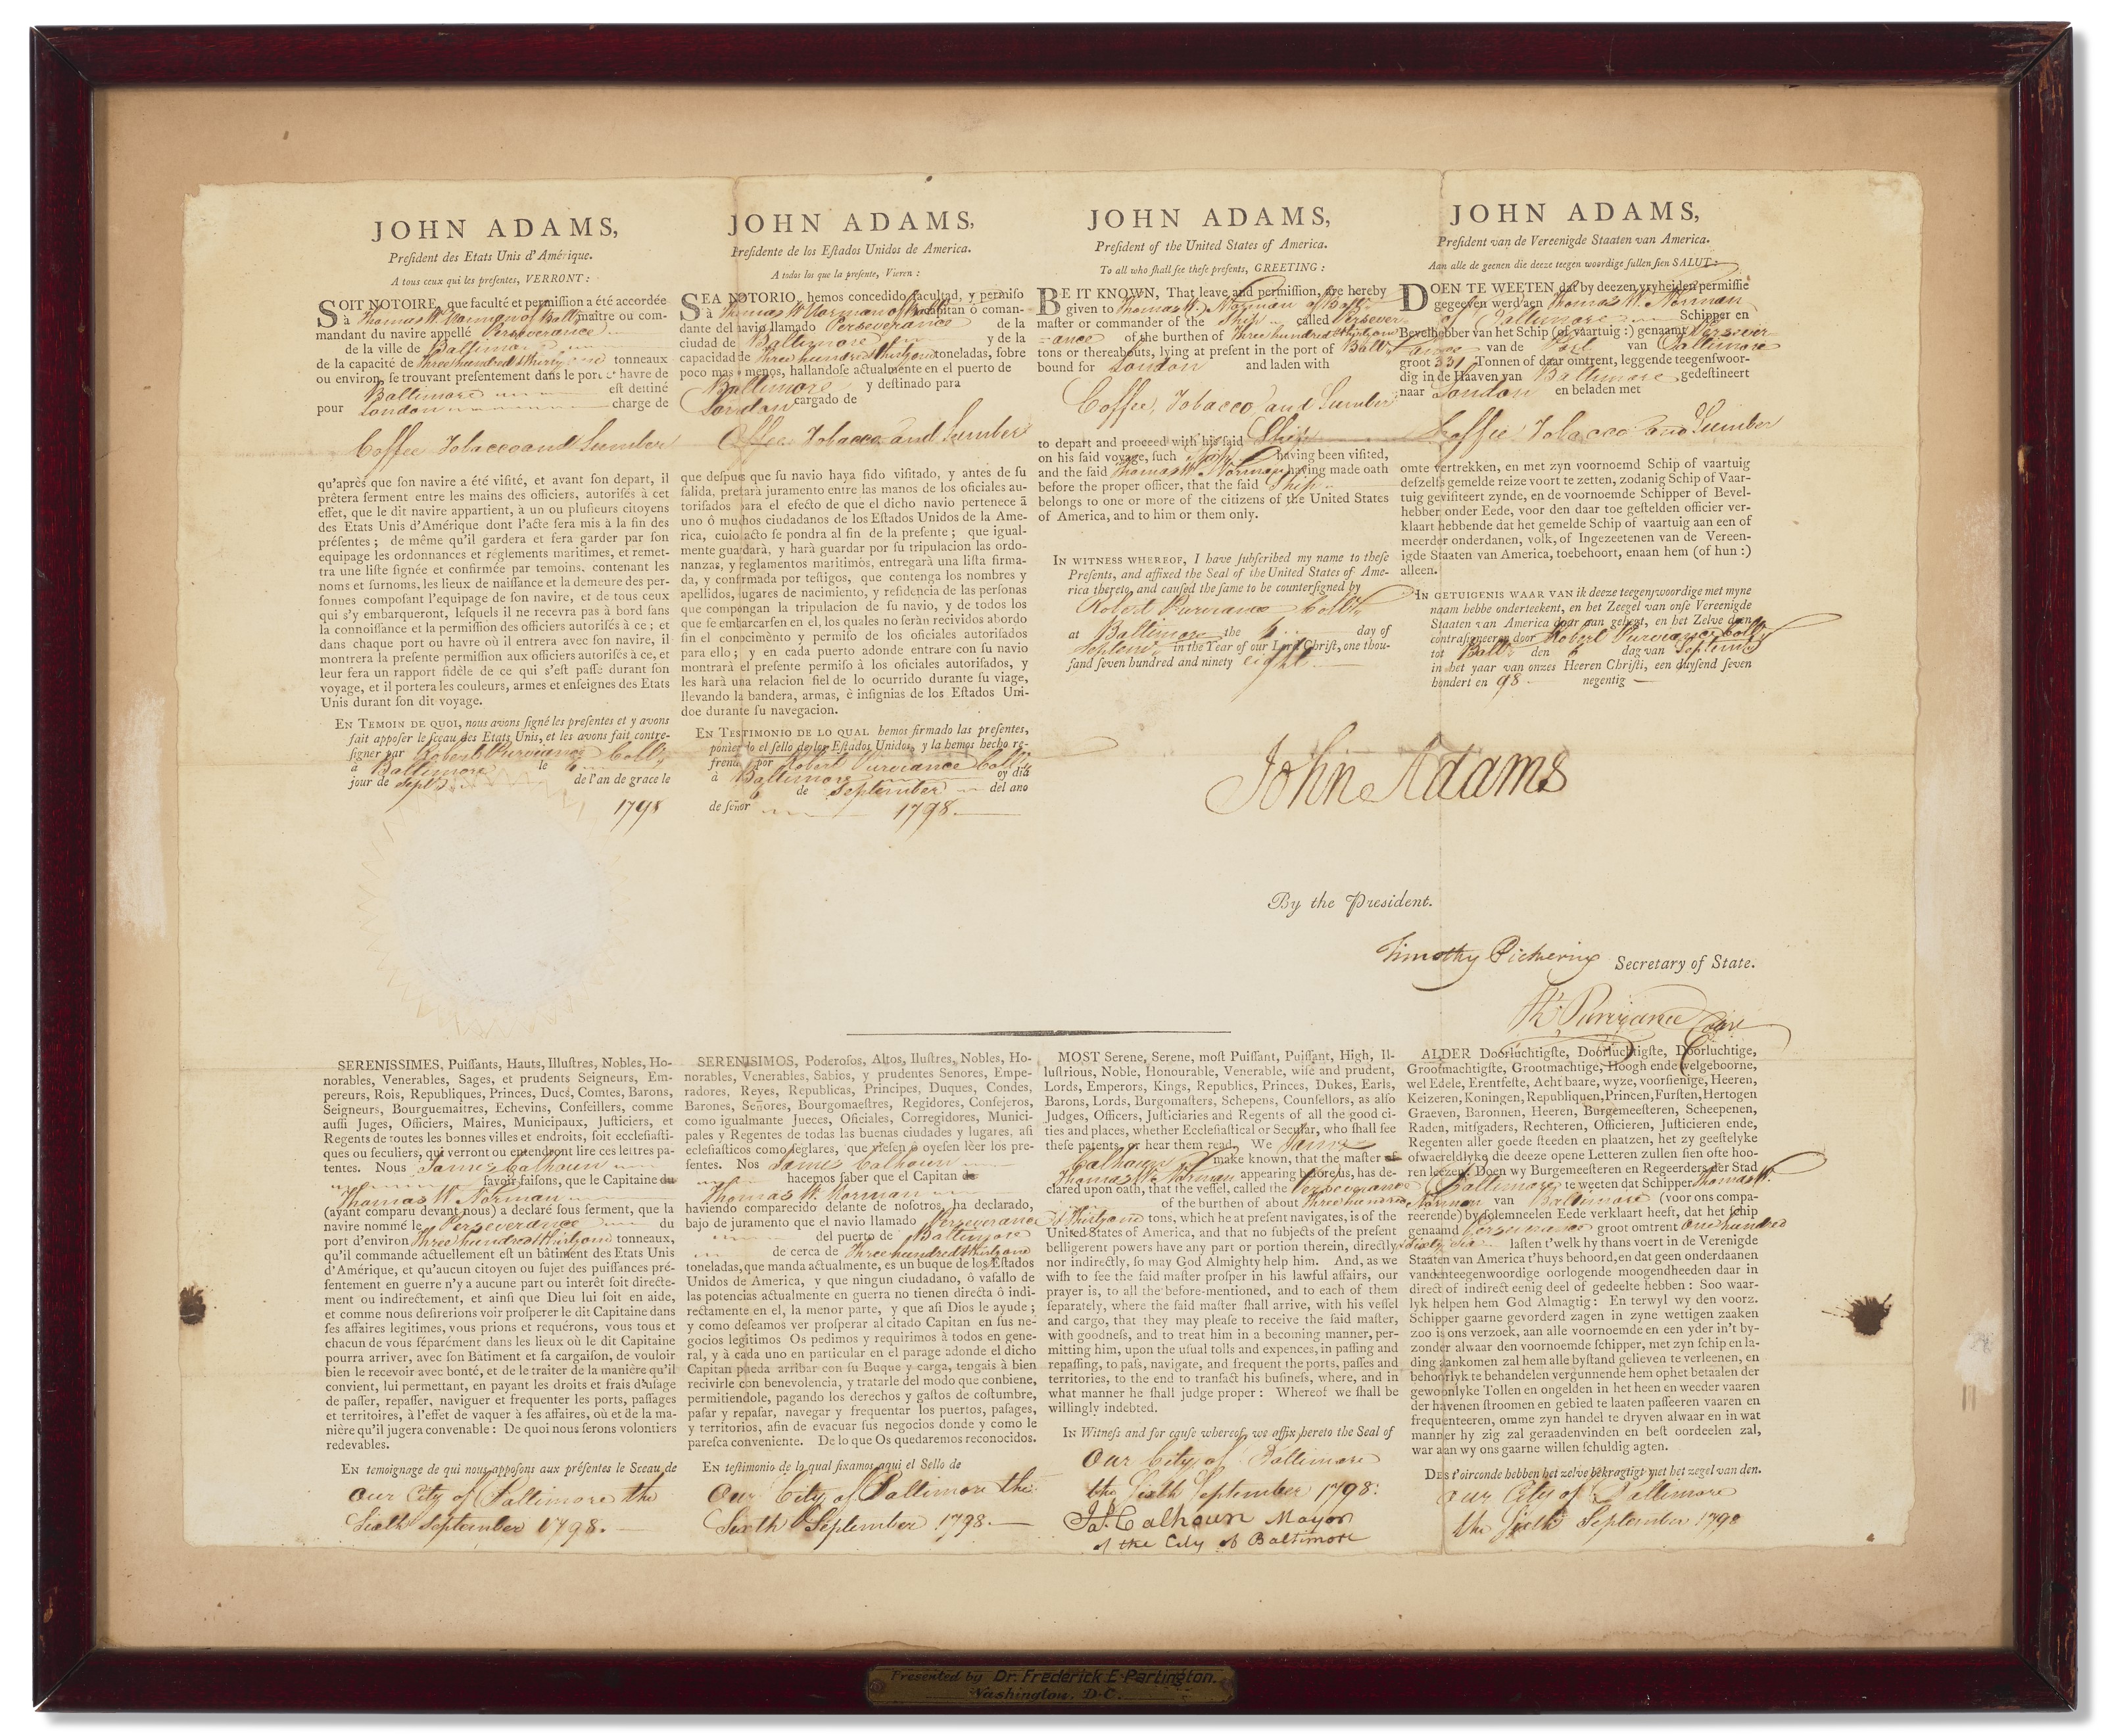 JOHN ADAMS,
Preſident des Etats Unis d'Amérique.
A tous ceux qui les preſentes, VERRONT :
SOIT NOTOIRE, que faculté et permiſſion a été accordée
à Thomas W. Norman of Balt. maitre ou com-
mandant du navire appellé Perseverance
de la ville de Baltimore
de la capacité de three hundred thirty one tonneaux
ou environ, ſe trouvant preſentement dans le port et havre de
Baltimore eſt deſtiné
pour London charge de
Coffee Tobacco and Lumber
qu'après que ſon navire a été viſité, et avant ſon depart, il
prêtera ſerment entre les mains des officiers, autoriſés à cet
effet, que le dit navire appartient, à un ou pluſieurs citoyens
des Etats Unis d'Amérique dont l'acte ſera mis à la fin des
préſentes ; de même qu'il gardera et fera garder par ſon
equipage les ordonnances et réglements maritimes, et remet-
tra une liſte ſignée et confirmée par temoins. contenant les
noms et ſurnoms, les lieux de naiſſance et la demeure des per-
ſonnes compoſant l'equipage de ſon navire, et de tous ceux
qui s'y embarqueront, leſquels il ne recevra pas à bord ſans
la connoiſſance et la permiſſion des officiers autoriſés à ce ; et
dans chaque port ou havre où il entrera avec ſon navire, il
montrera la preſente permiſſion aux officiers autoriſés à ce, et
leur fera un rapport fidèle de ce qui s'eſt paſſé durant ſon
voyage, et il portera les couleurs, armes et enſeignes des Etats
Unis durant ſon dit voyage.
EN TEMOIN DE QUOI, nous avons ſigné les preſentes et y avons
fait appoſer le ſceau des Etats Unis, et les avons fait contre-
ſigner par Robert Purviance Coll.
à Baltimore le 6
jour de Septr. de l'an de grace le
1798
JOHN ADAMS,
Preſidente de los Eſtados Unidos de America.
A todos los que la preſente, Vieren :
SEA NOTORIO, hemos concedido facultad, y permiſo
à Thomas W. Norman of Balt. capitan ò coman-
dante del navio llamado Perseverance de la
ciudad de Baltimore y de la
capacidad de three hundred thirty one toneladas, ſobre
poco mas ò menos, hallandoſe actualmente en el puerto de
Baltimore y deſtinado para
London cargado de
Coffee Tobacco and Lumber
que deſpues que ſu navio haya ſido viſitado, y antes de ſu
ſalida, pretarà juramento entre las manos de los oficiales au-
toriſados para el efecto de que el dicho navio pertenece ã
uno ó muchos ciudadanos de los Eſtados Unidos de la Ame-
rica, cuio acto ſe pondra al fin de la preſente ; que igual-
mente guardarà, y harà guardar por ſu tripulacion las ordo-
nanzas, y reglamentos maritimos, entregarà una liſta firma-
da, y confirmada por teſtigos, que contenga los nombres y
apellidos, lugares de nacimiento, y reſidencia de las perſonas
que compongan la tripulacion de ſu navio, y de todos los
que ſe embarcarſen en el, los quales no ſeràn recividos abordo
ſin el conocimènto y permiſo de los oficiales autoriſados
para ello ; y en cada puerto adonde entrare con ſu navio
montrarà el preſente permiſo à los oficiales autoriſados, y
les harà una relacion fiel de lo ocurrido durante ſu viage,
llevando la bandera, armas, è inſignias de los Eſtados Uni-
doe durante ſu navegacion.
EN TESTIMONIO DE LO QUAL hemos firmado las preſentes,
poniendo el ſello de los Eſtados Unidos, y la hemos hecho re-
frendar por Robert Purviance Coll.
à Baltimore oy dia
6 de September del ano
de ſeñor 1798.
JOHN ADAMS,
Preſident of the United States of America.
To all who ſhall ſee theſe preſents, GREETING :
BE IT KNOWN, That leave and permiſſion, are hereby
given to Thomas W. Norman of Balt.
maſter or commander of the Ship called Persever
-ance of the burthen of three hundred & thirty one
tons or thereabouts, lying at preſent in the port of Balt.
bound for London and laden with
Coffee, Tobacco and Lumber
to depart and proceed with his ſaid Ship
on his ſaid voyage, ſuch Ship having been viſited,
and the ſaid Thomas W. Norman having made oath
before the proper officer, that the ſaid Ship
belongs to one or more of the citizens of the United States
of America, and to him or them only.
IN WITNESS WHEREOF, I have ſubſcribed my name to theſe
Preſents, and affixed the Seal of the United States of Ame-
rica thereto, and cauſed the ſame to be counterſigned by
Robert Purviance Coll.
at Baltimore the 6 day of
Septemr. in the Year of our Lord Chriſt, one thou-
ſand ſeven hundred and ninety eight
JOHN ADAMS,
Preſident van de Vereenigde Staaten van America.
Aan alle de geenen die deeze teegen woordige ſullen ſien SALUT :
DOEN TE WEETEN dat by deezen vryheiden permiſſie
gegeeven werd aen Thomas W. Norman
of Baltimore Schipper en
Bevelhebber van het Schip (of vaartuig :) genaamt Persever
ance van de Port van Baltimore
groot 331 Tonnen of daar ountrent, leggende teegenſwoor-
dig in de Haaven van Baltimore gedeſtineert
naar London en beladen met
Coffee Tobacco and Lumber
omte vertrekken, en met zyn voornoemd Schip of vaartuig
deſzelfs gemelde reize voort te zetten, zodanig Schip of Vaar-
tuig geviſiteert zynde, en de voornoemde Schipper of Bevel-
hebber onder Eede, voor den daar toe geſtelden officier ver-
klaart hebbende dat het gemelde Schip of vaartuig aan een of
meerder onderdanen, volk, of Ingezeetenen van de Vereen-
igde Staaten van America, toebehoort, enaan hem (of hun :)
alleen.
IN GETUIGENIS WAAR VAN ik deeze teegenſwoordige met myne
naam hebbe onderteekent, en het Zeegel van onſe Vereenigde
Staaten van America daar aan gehegt, en het Zelve doen
contraſigneeren door Robert Purviance Coll.
tot Balt. den 6 dag van Septemr.
in het yaar van onzes Heeren Chriſti, een duyſend ſeven
hondert en 98 negentig
John Adams
By the President.
Timothy Pickering Secretary of State.
Rt. Purviance Collr
SERENISSIMES, Puiſſants, Hauts, Illuſtres, Nobles, Ho-
norables, Venerables, Sages, et prudents Seigneurs, Em-
pereurs, Rois, Republiques, Princes, Ducs, Comtes, Barons,
Seigneurs, Bourguemaitres, Echevins, Conſeillers, comme
auſſi Juges, Officiers, Maires, Municipaux, Juſticiers, et
Regents de toutes les bonnes villes et endroits, ſoit eccleſiaſti-
ques ou ſeculiers, qui verront ou entendront lire ces lettres pa-
tentes. Nous James Calhoun
ſavoir faiſons, que le Capitaine du
Thomas W. Norman
(ayant comparu devant nous) a declaré ſous ſerment, que la
navire nommé le Perseverance du
port d'environ three hundred thirty one tonneaux,
qu'il commande actuellement eſt un bâtiment des Etats Unis
d'Amérique, et qu'aucun citoyen ou ſujet des puiſſances pré-
ſentement en guerre n'y a aucune part ou interêt ſoit directe-
ment ou indirectement, et ainſi que Dieu lui ſoit en aide,
et comme nous deſirerions voir proſperer le dit Capitaine dans
ſes affaires legitimes, vous prions et requérons, vous tous et
chacun de vous ſéparément dans les lieux où le dit Capitaine
pourra arriver, avec ſon Bâtiment et ſa cargaiſon, de vouloir
bien le recevoir avec bonté, et de le traiter de la manière qu'il
convient, lui permettant, en payant les droits et frais d'uſage
de paſſer, repaſſer, naviguer et frequenter les ports, paſſages
et territoires, à l'effet de vaquer à ſes affaires, où et de la ma-
nière qu'il jugera convenable : De quoi nous ſerons volontiers
redevables.
EN temoignage de qui nous appoſons aux préſentes le Sceau de
Our City of Baltimore the
Sixth September 1798.
SERENISIMOS, Poderoſos, Altos, Iluſtres, Nobles, Ho-
norables, Venerables, Sabios, y prudentes Senores, Empe-
radores, Reyes, Republicas, Principes, Duques, Condes,
Barones, Señores, Bourgomaeſtres, Regidores, Conſejeros,
como igualmante Jueces, Oficiales, Corregidores, Munici-
pales y Regentes de todas las buenas ciudades y lugares, aſi
ecleſiaſticos como ſeglares, que vieſen ò oyeſen lèer los pre-
ſentes. Nos James Calhoun
hacemos ſaber que el Capitan de
Thomas W. Norman
haviendo comparecido delante de noſotros, ha declarado,
bajo de juramento que el navio llamado Perseverance
del puerto de Baltimore
de cerca de three hundred thirty one
toneladas, que manda actualmente, es un buque de los Eſtados
Unidos de America, y que ningun ciudadano, ô vaſallo de
las potencias actualmente en guerra no tienen directa ô indi-
rectamente en el, la menor parte, y que aſi Dios le ayude ;
y como deſeamos ver proſperar al citado Capitan en ſus ne-
gocios legitimos Os pedimos y requirimos à todos en gene-
ral, y à cada uno en particular en el parage adonde el dicho
Capitan pueda arribar con ſu Buque y carga, tengais à bien
recivirle con benevolencia, y tratarle del modo que conbiene,
permitiendole, pagando los derechos y gaſtos de coſtumbre,
paſar y repaſar, navegar y frequentar los puertos, paſages,
y territorios, afin de evacuar ſus negocios donde y como le
pareſca conveniente. De lo que Os quedaremos reconocidos.
EN teſtimonio de lo qual fixamos aqui el Sello de
Our City of Baltimore the
Sixth September 1798.
MOST Serene, Serene, moſt Puiſſant, Puiſſant, High, Il-
luſtrious, Noble, Honourable, Venerable, wiſe and prudent,
Lords, Emperors, Kings, Republics, Princes, Dukes, Earls,
Barons, Lords, Burgomaſters, Schepens, Counſellors, as alſo
Judges, Officers, Juſticiaries and Regents of all the good ci-
ties and places, whether Eccleſiaſtical or Secular, who ſhall ſee
theſe patents, or hear them read. We James
Calhoun make known, that the maſter of
Thomas W. Norman appearing before us, has de-
clared upon oath, that the veſſel, called the Perseverance
of the burthen of about three hundred
& thirty one tons, which he at preſent navigates, is of the
United States of America, and that no ſubjects of the preſent
belligerent powers have any part or portion therein, directly
nor indirectly, ſo may God Almighty help him. And, as we
wiſh to ſee the ſaid maſter proſper in his lawful affairs, our
prayer is, to all the before-mentioned, and to each of them
ſeparately, where the ſaid maſter ſhall arrive, with his veſſel
and cargo, that they may pleaſe to receive the ſaid maſter,
with goodneſs, and to treat him in a becoming manner, per-
mitting him, upon the uſual tolls and expences, in paſſing and
repaſſing, to paſs, navigate, and frequent the ports, paſſes and
territories, to the end to tranſact his buſineſs, where, and in
what manner he ſhall judge proper : Whereof we ſhall be
willingly indebted.
IN Witneſs and for cauſe whereof, we affix hereto the Seal of
Our City of Baltimore
the Sixth September 1798.
Jas. Calhoun Mayor
of the City of Baltimore
ALDER Doorluchtigſte, Doorluchtigſte, Doorluchtige,
Grootmachtigſte, Grootmachtige, Hoogh ende welgeboorne,
wel Edele, Erentfeſte, Acht baare, wyze, voorſienige, Heeren,
Keizeren, Koningen, Republiquen, Princen, Furſten, Hertogen
Graeven, Baronnen, Heeren, Burgemeeſteren, Scheepenen,
Raden, mitſgaders, Rechteren, Officieren, Juſticieren ende,
Regenten aller goede ſteeden en plaatzen, het zy geeſtelyke
ofwaereldlyke die deeze opene Letteren zullen ſien ofte hoo-
ren leezen. Doen wy Burgemeeſteren en Regeerders der Stad
Baltimore te weeten dat Schipper Thomas W.
Norman van Baltimore (voor ons compa-
reerende) by ſolemneelen Eede verklaart heeft, dat het ſchip
genaamd Perseverance groot omtrent One hundred
Sixty Six laſten t'welk hy thans voert in de Verenigde
Staaten van America t'huys behoord, en dat geen onderdaanen
vandenteegenwoordige oorlogende moogendheeden daar in
direct of indirect eenig deel of gedeelte hebben : Soo waar-
lyk helpen hem God Almagtig : En terwyl wy den voorz.
Schipper gaarne gevorderd zagen in zyne wettigen zaaken
zoo is ons verzoek, aan alle voornoemde en een yder in't by-
zonder alwaar den voornoemde ſchipper, met zyn ſchip en la-
ding aankomen zal hem alle byſtand gelieven te verleenen, en
behoorlyk te behandelen vergunnende hem ophet betaalen der
gewoonlyke Tollen en ongelden in het heen en weeder vaaren
der havenen ſtroomen en gebied te laaten paſſeeren vaaren en
frequenteeren, omme zyn handel te dryven alwaar en in wat
manner hy zig zal geraadenvinden en beſt oordeelen zal,
war aan wy ons gaarne willen ſchuldig agten.
DES t'oirconde hebben het zelve bekragtigt met het zegel van den.
Our City of Baltimore
the Sixth September 1798
Presented by Dr. Frederick E. Partington.
Washington, D.C.